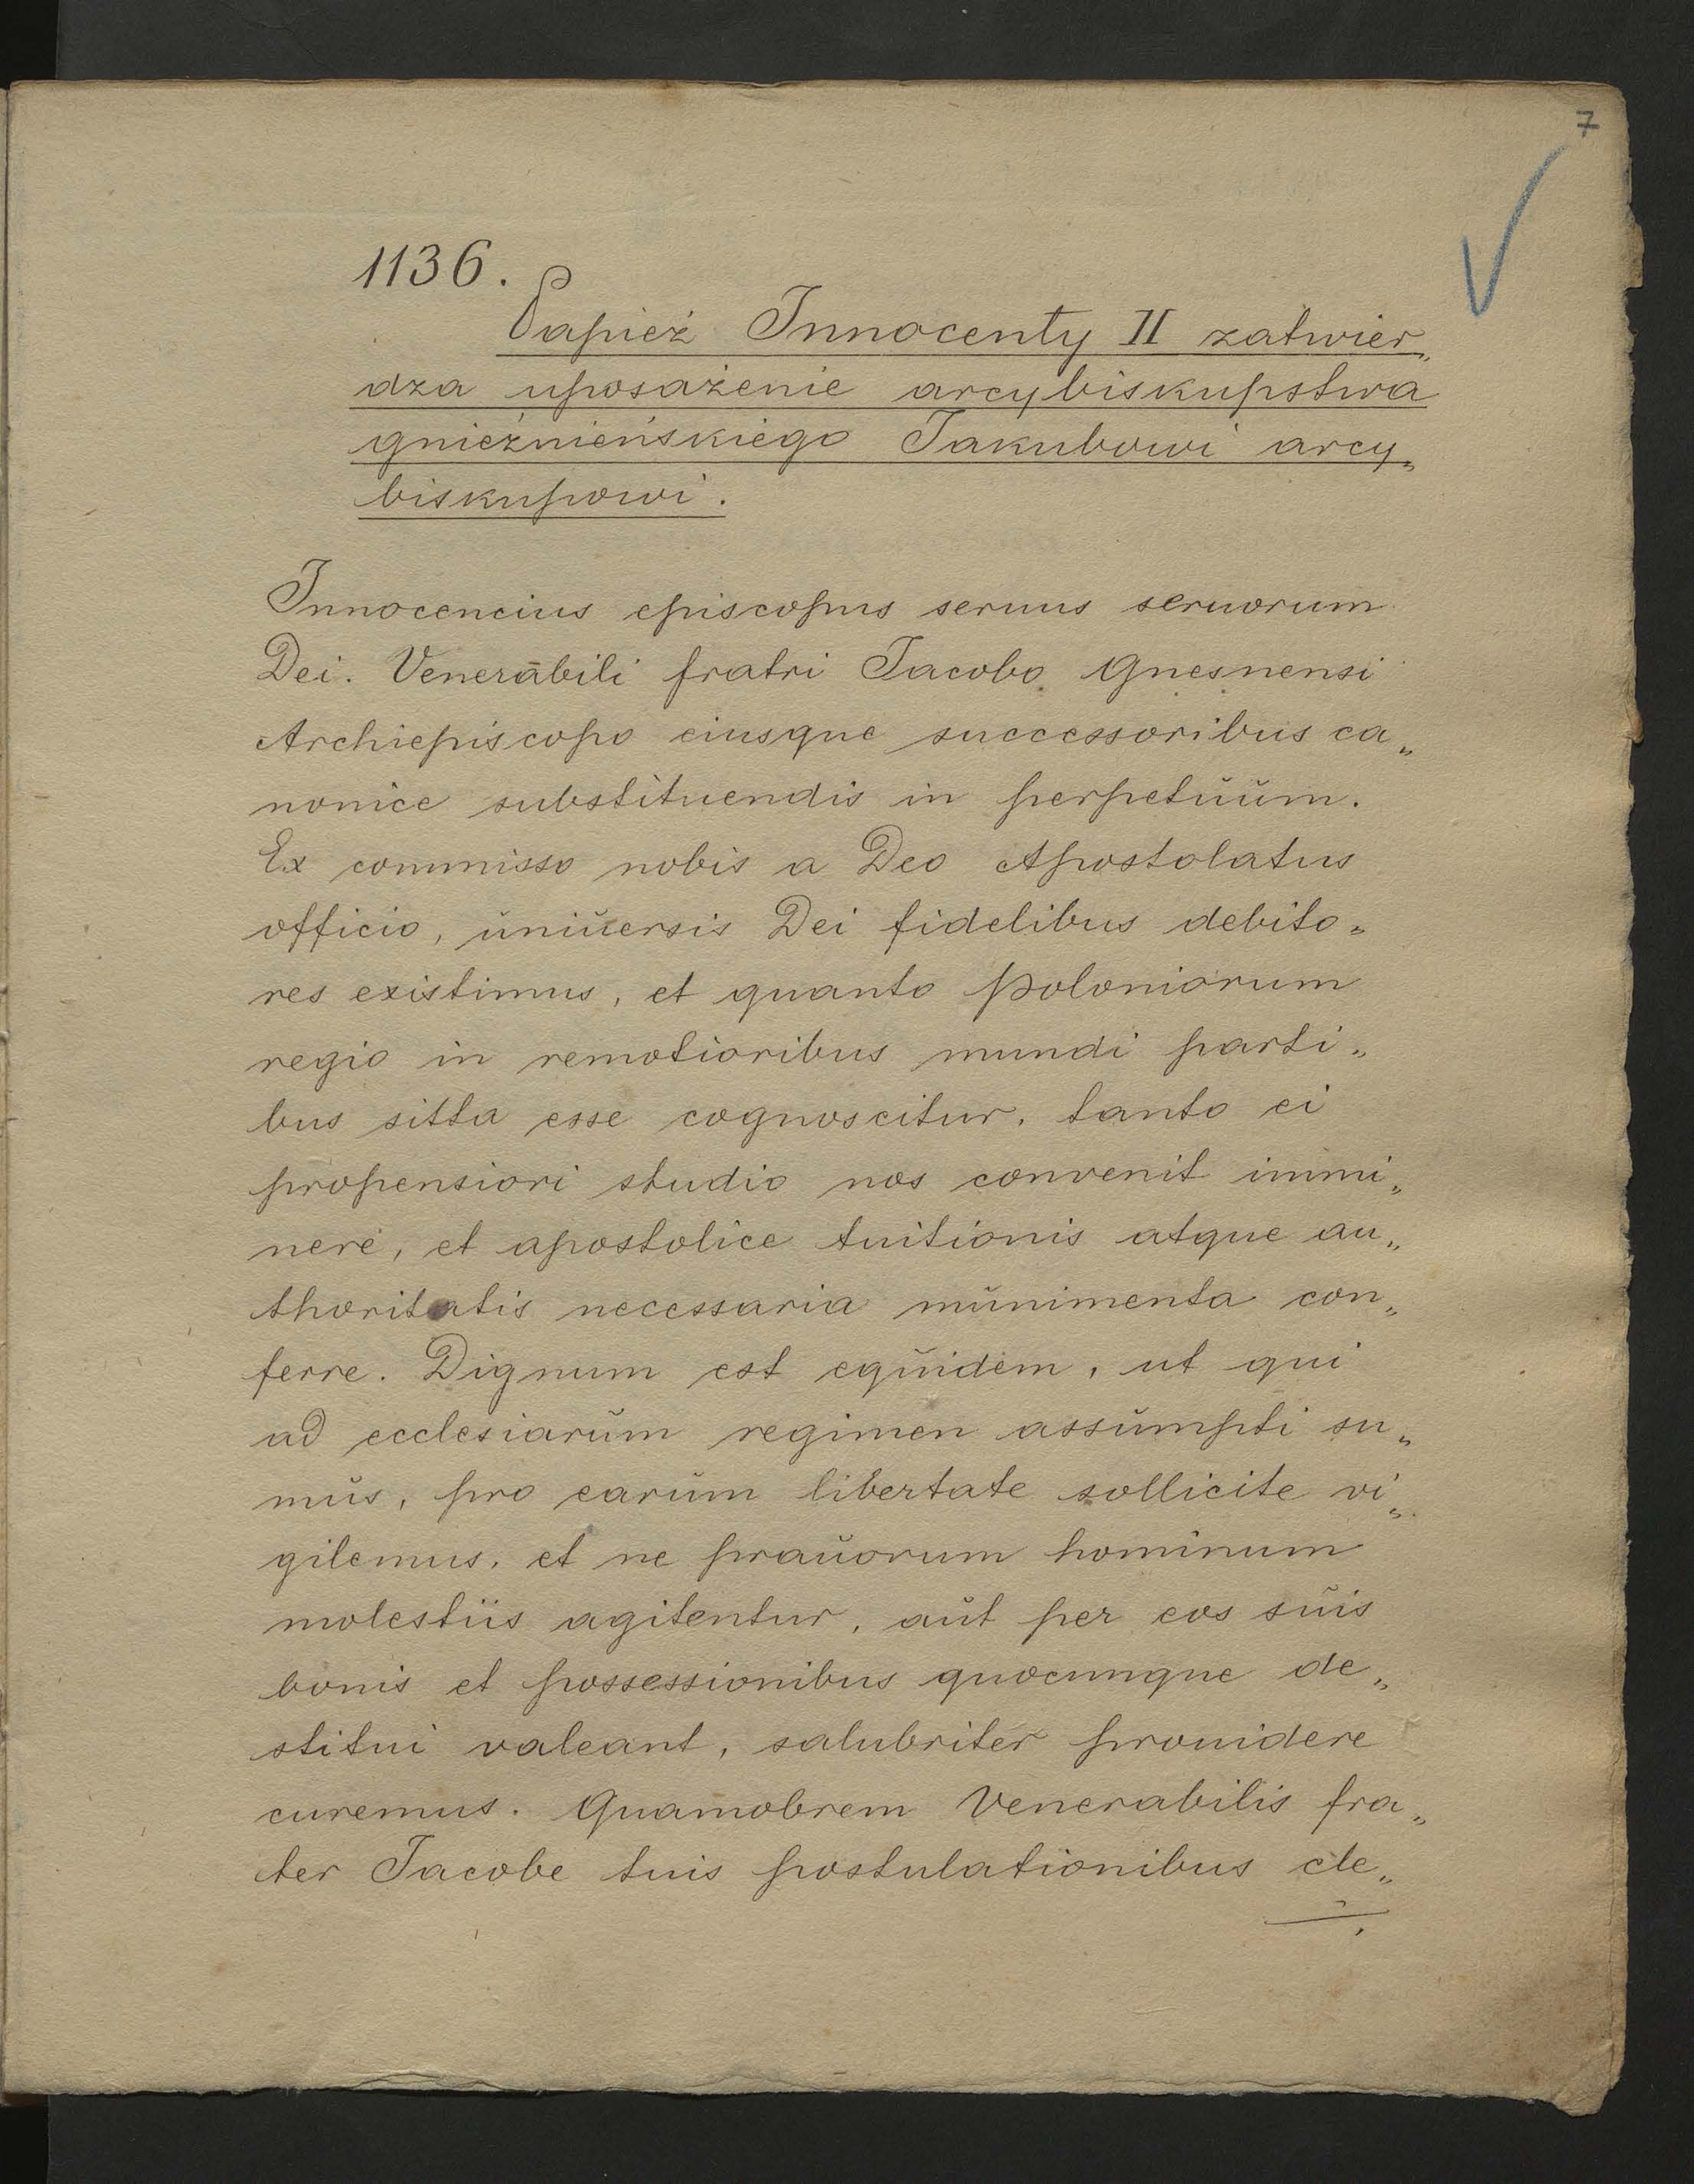 7
1136.
Papież Innocenty II zatwier„
dza uposażenie arcybiskupstwa
gnieźnieńskiego Jakubowi arcy„
biskupowi.
Innocencius episcopus seruus seruorum
Dei. Venerabili fratri Jacobo Gnesnensi
Archiepiscopo eiusque successoribus ca„
nonice substituendis in perpetŭŭm.
Ex commisso nobis a Deo Apostolatus
officio, ŭniŭersis Dei fidelibus debito„
res existimus, et quanto Poloniorum
regio in remotioribus mundi parti„
bus sitta esse cognoscitur, tanto ei
propensiori studio nos convenit immi„
nere, et apostolice tuitionis atque au„
thoritatis necessaria mŭnimenta con„
ferre. Dignum est eqŭidem, ut qui
ad ecclesiarŭm regimen assŭmpti su„
mŭs, pro earŭm libertate sollicite vi„
gilemus, et ne praŭorum hominum
molestiis agitentur, aŭt per eos sŭis
bonis et possessionibus quocunque de„
stitui valeant, salubriter prouidere
curemus. Quamobrem Venerabilis fra„
ter Jacobe tuis postulationibus cle„